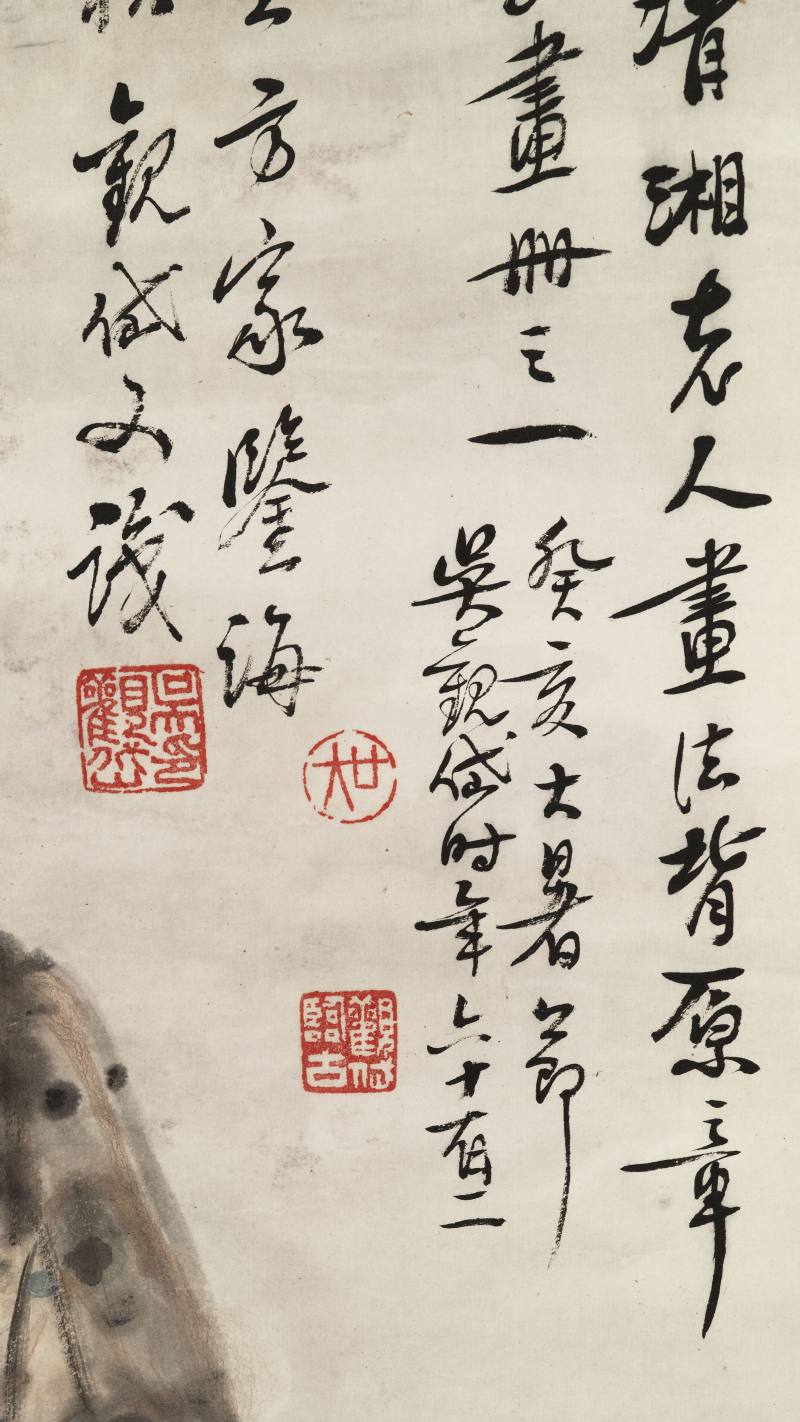 清湘老人畫法背原章
畫冊之一
癸亥大暑節
吳觀岱時年六十有二
觀岱臨古
方家鑒誨
觀岱又識
吳印觀岱